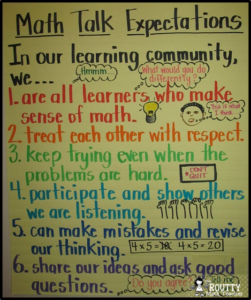 Math Talk Expectations
In our learning community,
we...
Hmmm
What would you do differently?
1. are all learners who make
sense of math.
This is what I think
2. treat each other with respect.
3. keep trying even when the
problems are hard.
DON'T QUIT
4. participate and show others
we are listening.
5. can make mistakes and revise
our thinking.
4x5=20
6. share our ideas and ask good
questions.
Do you agree?
ROUTTY